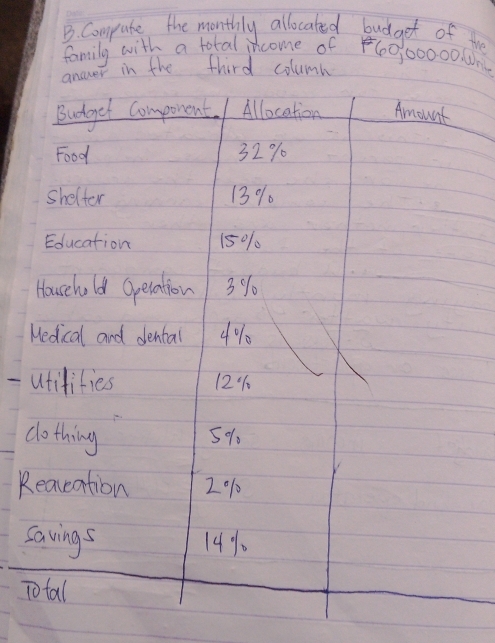 B. Compute the monthly allocated budget of the
family with a total income of ₱60,000.00. Write
answer in the third column
Budget Component Allocation Amount
Food 32%
Shelter 13%
Education 15%
Household Operation 3%
Medical and dental 4%
Utilities 12%
Clothing 5%
Recreation 2%
Savings 14%
Total